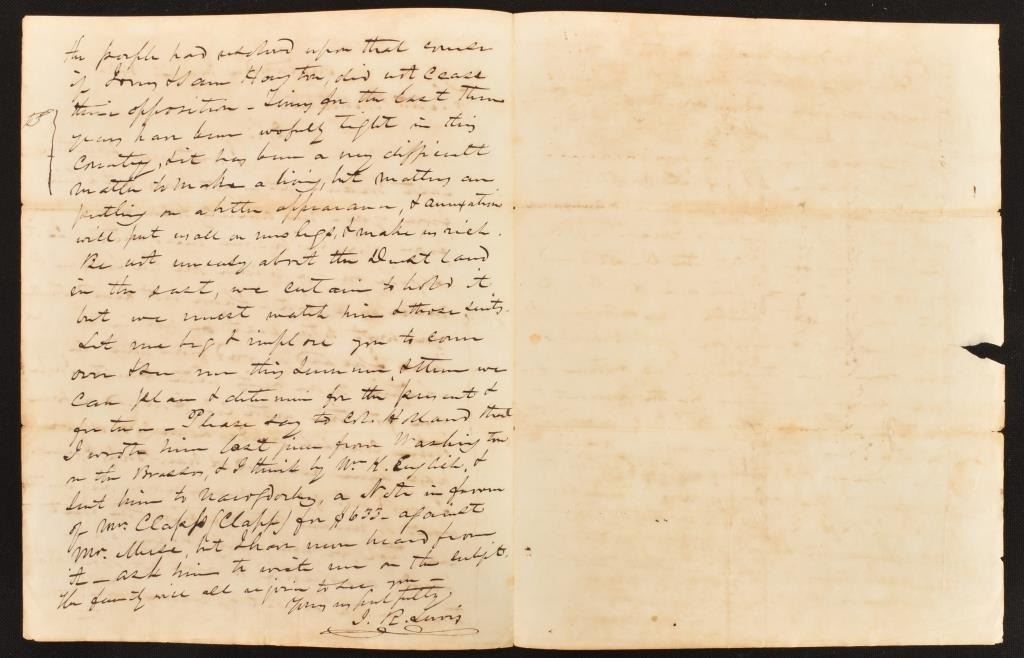 the people had resolved upon that course
if Jones & Sam Houston, did not cease
their opposition – Times for the last three
years have been wofully tight in this
Country, & it has been a very difficult
matter to make a living, but matters are
putting on a better appearance, & annexation
will put us all on our legs, & make us rich.
Be not uneasy about the Dust land
in the east, we certain to hold it
but we must watch him & those suits.
Let me beg & implore you to come
over & see me this Summer, & then we
can plan & determine for the present &
future – Please say to Col. Holland that
I wrote him last June from Washington
on the Brassos, & I think by Wm K. English, &
sent him to Nacogdoches, a Note in favor
of Mrs. Clapps (Clapp) for $633 – against
Mr. Muse, but I have never heard from
it – ask him to write me on the subject.
The family will all rejoice to see you –
Yours respectfully
I. R. Lewis